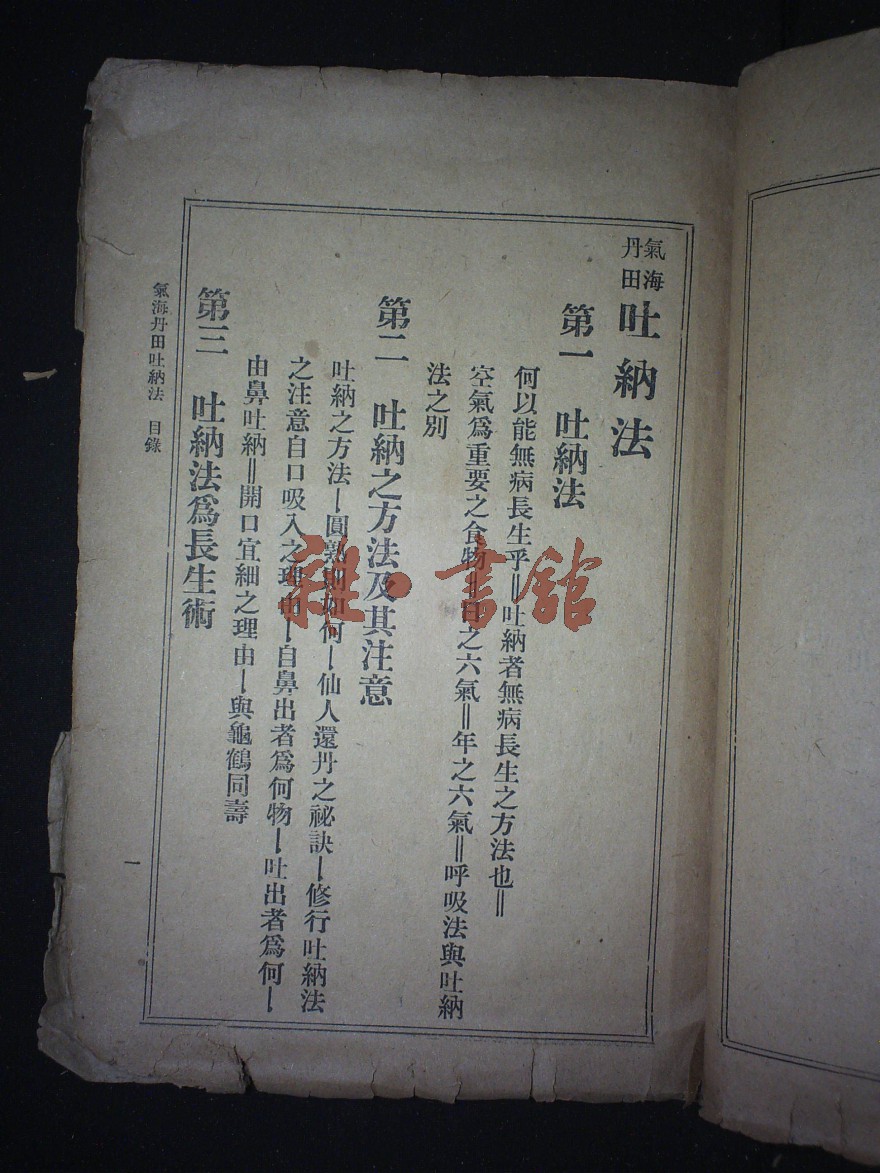 氣海
丹田
吐納法
第一　吐納法
何以能無病長生乎‖吐納者無病長生之方法也‖
空氣爲重要之食物‖日之六氣‖年之六氣‖呼吸法與吐納
法之別
第二　吐納之方法及其注意
吐納之方法ー圓熟則如何ー仙人還丹之祕訣ー修行吐納法
之注意自口吸入之理由ー自鼻出者爲何物ー吐出者爲何ー
由鼻吐納‖開口宜細之理由ー與龜鶴同壽
第三　吐納法爲長生術
氣海丹田吐納法　目錄
一
雜·書館